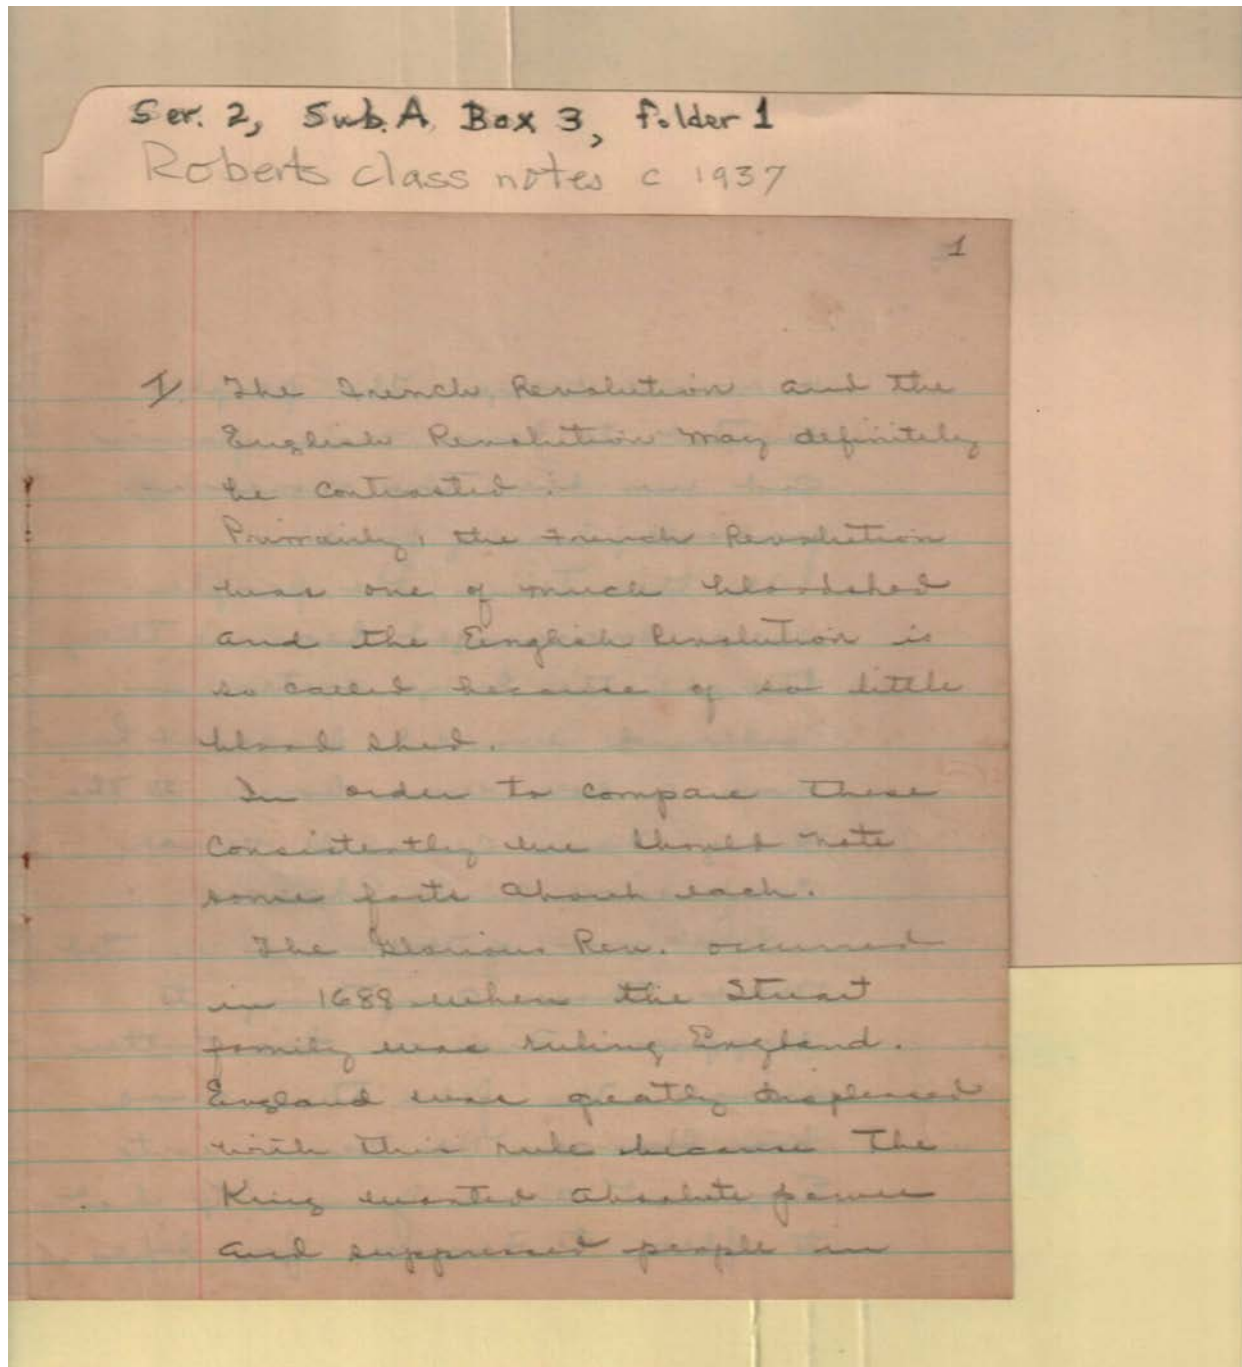 Ser. 2, Sub. A Box 3, folder 1
Roberts class notes c 1937
1
I The French Revolution and the
English Revolution may definitely
be contrasted.
Primarily, the French Revolution
was one of much bloodshed
and the English Revolution is
so called because of so little
blood shed.
In order to compare these
consistently we should note
some facts about each.
The Glorious Rev. occurred
in 1688 when the Stuart
family was ruling England.
England was greatly displeased
with this rule because the
King wanted absolute power
and suppressed people in